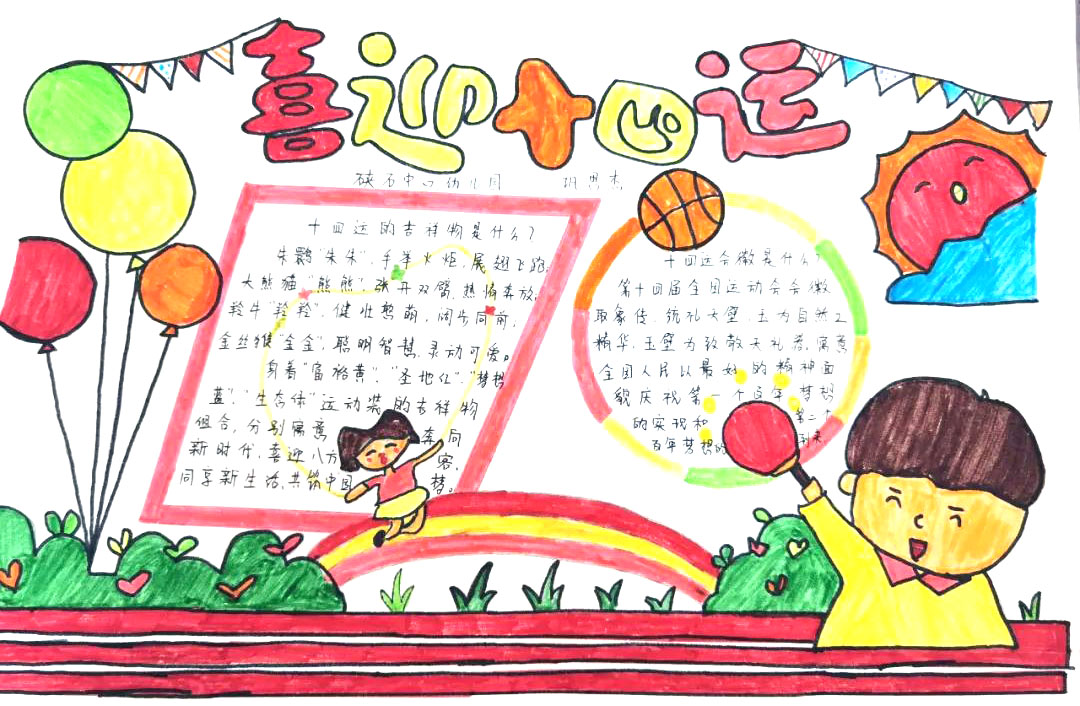 喜迎十四运
硖石中心幼儿园 班思杰
十四运的吉祥物是什么?
朱鹮"朱朱",手举火炬,展翅飞跑。
大熊猫"熊熊"张开双臂,热情奔放,
羚牛"羚羚",健壮憨萌,阔步向前,
金丝猴"金金",聪明智慧,灵动可爱。
身着"富裕黄"、"圣地红"、"梦想
蓝"、"生态绿"运动装的吉祥物
组合,分别寓意 奔向
新时代,喜迎八方 客,
同享新生活,共筑中国 梦。
十四运会徽是什么?
第十四届全国运动会会徽
取象传统礼天璧,玉为自然之
精华,玉璧为致敬天礼器,寓意
全国人民以最好的精神面
貌庆祝第一个百年梦想
的实现和 第二个
百年梦想的 到来